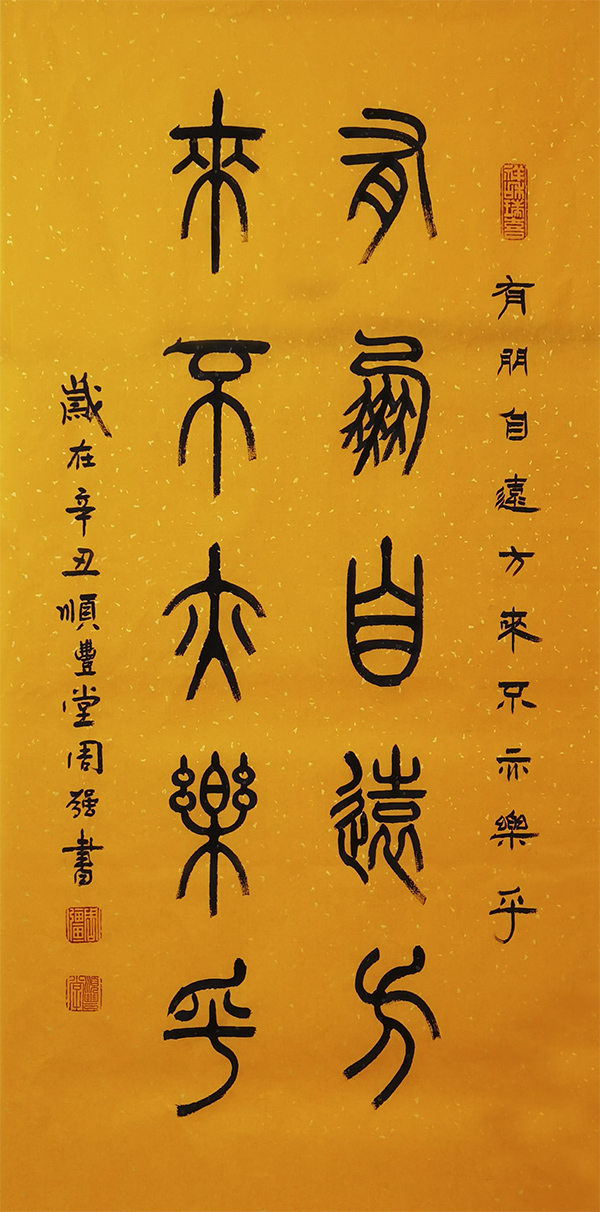 有朋自遠方來不亦樂乎
有朋自遠方
來不亦樂乎
歲在辛丑順豐堂周强書